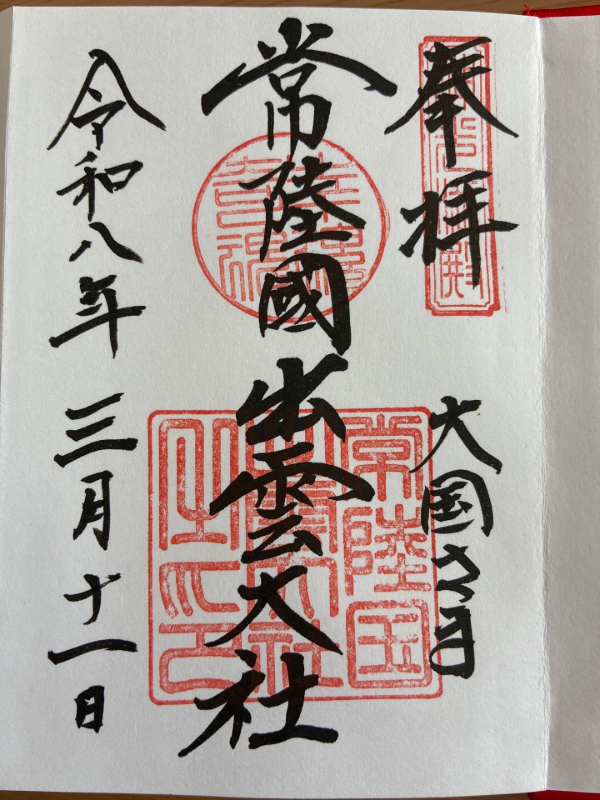 奉拝
大国さま
常陸國出雲大社
常陸国
出雲大社
之印
令和八年三月十一日